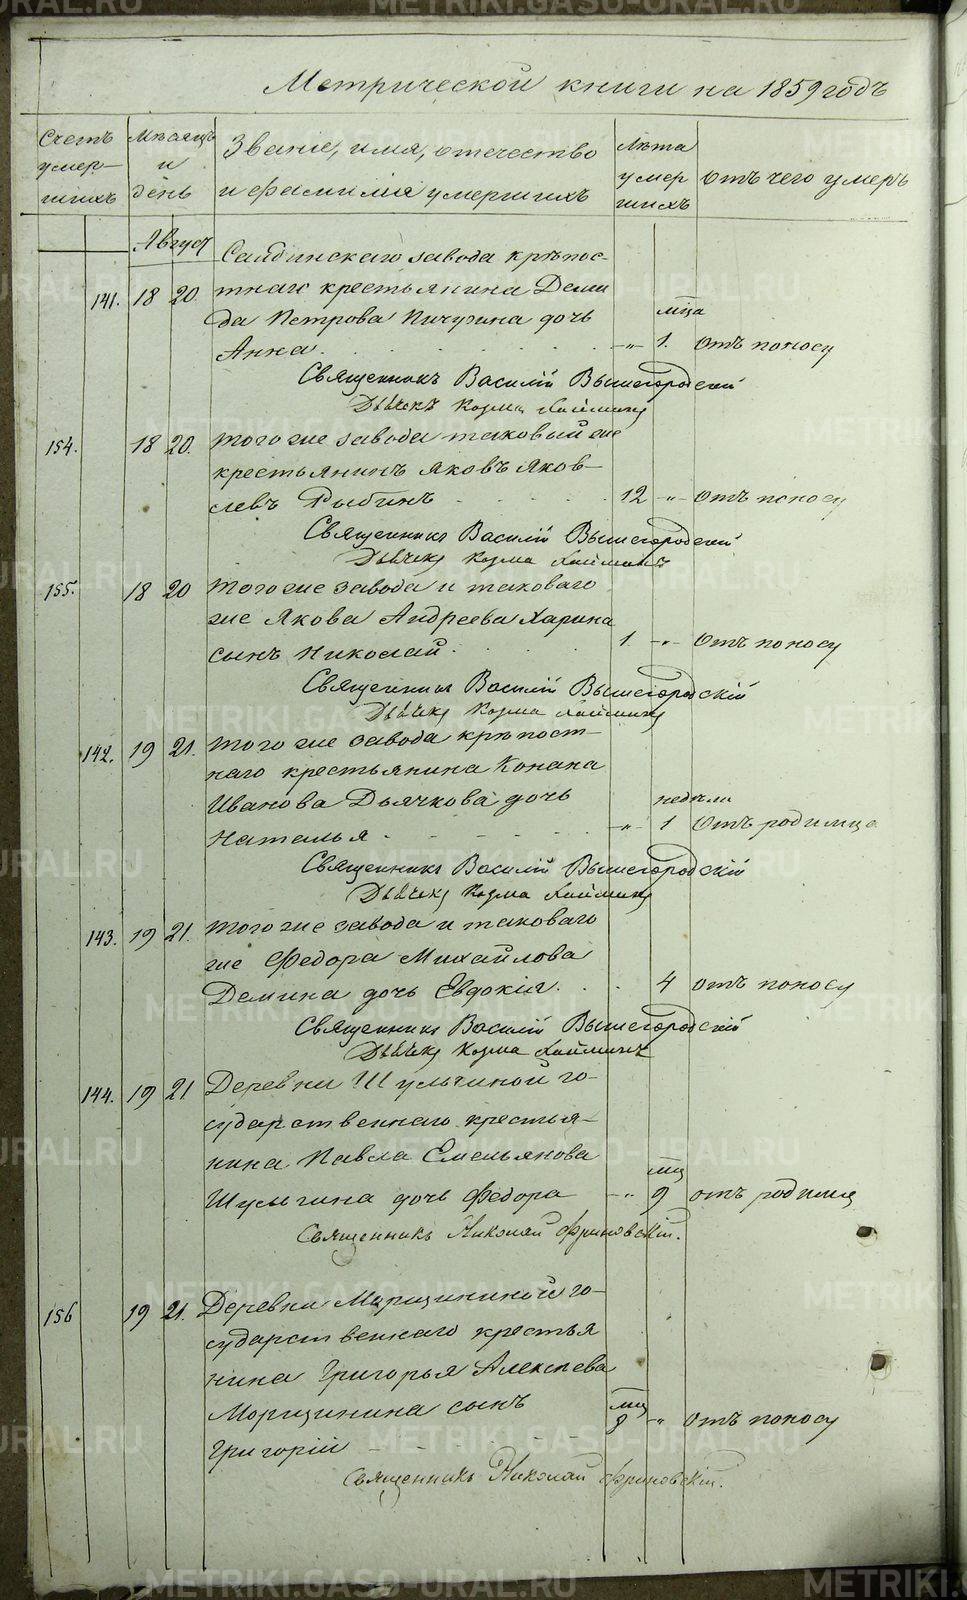 Метрической книги на 1859 годъ
Счетъ умер-шихъ
Мѣсяцъ и день
Званіе, имя, отечество и фамилія умершихъ
Лѣта умершихъ
Отъ чего умеръ
Августъ
Саидинскаго завода крѣпос-
141. 18 20. тнаго крестьянина Деми
да Петрова Пичугина дочь мца
Анна. -„- 1. отъ поносу
Священникъ Василій Вышегородскій
Дьячекъ Козма
154. 18 20. того же завода таковый же
крестьянинъ Яковъ Яков-
левъ Рыбинъ 12 -„- отъ поносу
Священникъ Василій Вышегородскій
Дьячекъ Козма
155. 18 20 того же завода и таковаго
же Якова Андреева Харина
сынъ Николай. 1. -„- отъ поносу
Священникъ Василій Вышегородскій
Дьячекъ Козма
142. 19 21. того же завода крѣпост-
наго крестьянина Конана
Иванова Дьячкова дочь недѣли
Наталья -„- 1 отъ родимца
Священникъ Василій Вышегородскій
Дьячекъ Козма
143. 19 21. того же завода и таковаго
же Федора Михайлова
Демина дочь Евдокія. 4 отъ поносу
Священникъ Василій Вышегородскій
Дьячекъ Козма
144. 19 21 Деревни Шульгиной го-
сударственнаго крестья-
нина Павла Емельянова мц
Шульгина дочь Федора -„- 9 отъ родимца
Священникъ Николай Фриновскій.
156 19 21. Деревни Морщининой го-
сударственнаго крестья
нина Григорья Алексѣева
Морщинина сынъ мц
Григорій 8 -„- отъ поносу
Священникъ Николай Фриновскій.
METRIKI.GASO-URAL.RU